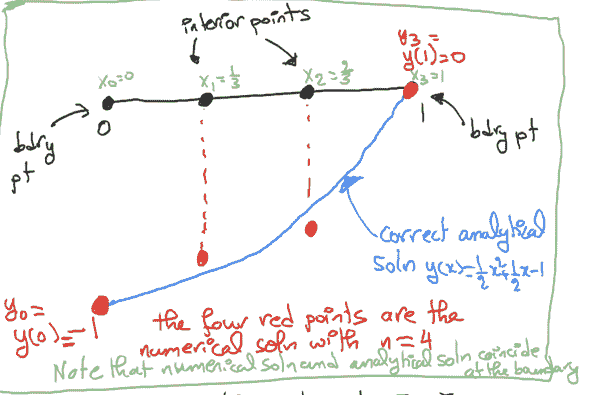 interior points
y₃ =
y(1)=0
x₀=0
x₁=1/3
x₂=2/3
x₃=1
bdry pt
0
1
bdry pt
correct analytical
soln y(x)=1/2x²+1/2x-1
y₀=
y(0)=-1
the four red points are the
numerical soln with n=4
Note that numerical soln and analytical soln coincide
at the boundary